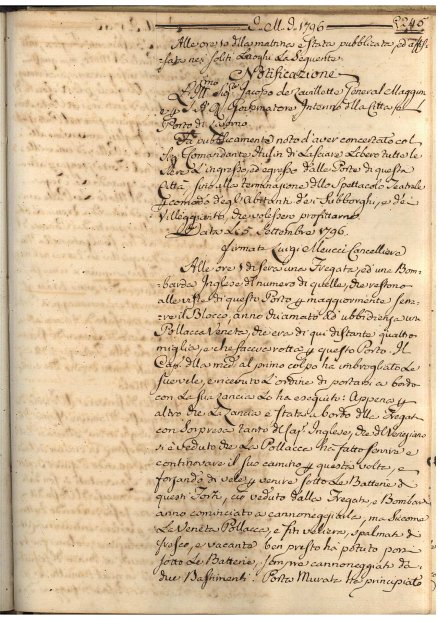 A. M. D. 1796
Alle ore 10 della mattina è stata pubblicata, ed affis-
sata nei soliti Luoghi La Seguente
Notificazione
Jacopo de Lavillette General Maggiore
e Governatore Interino della Città, e
Porto di Livorno
Fa pubblicamente noto d'aver concertato col
Sig. Comandante di Lasciare Libero tutte le
Sere L'ingresso, ed egresso dalle Porte di questa
Città, fino alla terminazione dello Spettacolo Teatrale
p comodo degl'Abitanti de' Subborghi, e de'
Villeggianti, che volessero profittarne
Data Li 5 Settembre 1796.
firmato Luigi Meucci Cancelliere
Alle ore 1 di sera una Fregata, ed una Bom-
barda Inglese del numero di quelle, che restono
alle viste di questo Porto p maggiormente Sem-
re il Blocco, anno chiamato ad ubbidienza una
Pollacca Veneta, che era di qui distante quattro
miglia, e che faceva rotta p questo Porto. Il
Cap. della med. al primo colpo ha imbrogliato Le
sue vele, e ricevuto L'ordine di portarsi a bordo
con La sua Lancia Lo ha eseguito: Appena p
altro che La Lancia è Stata a bordo della Fregata
con Sorpresa tanto del Cap. Inglese, che del Veneziano
si è veduto che La Pollacca ha fatto Servire e
continovare il suo camino p questa volta, e
forzando di vele p venire sotto Le Batterie di
questi Forti, ciò veduto dalla Fregata, e Bombarda
anno cominciato a cannoneggiarla, ma Siccome
La Veneta Pollacca, e fine veliera, spalmata di
fresco, e vacante ben presto ha potuto por-
Sotto Le Batterie, Sempre cannoneggiata da
due Bastimenti: Porta Murata Ha principiato